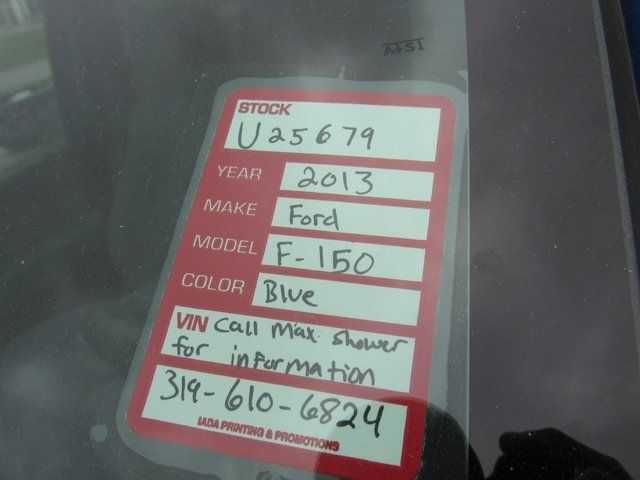 STOCK
U25679
YEAR 2013
MAKE Ford
MODEL F-150
COLOR Blue
VIN Call Max Shower
for information
319-610-6824
IADA PRINTING & PROMOTIONS